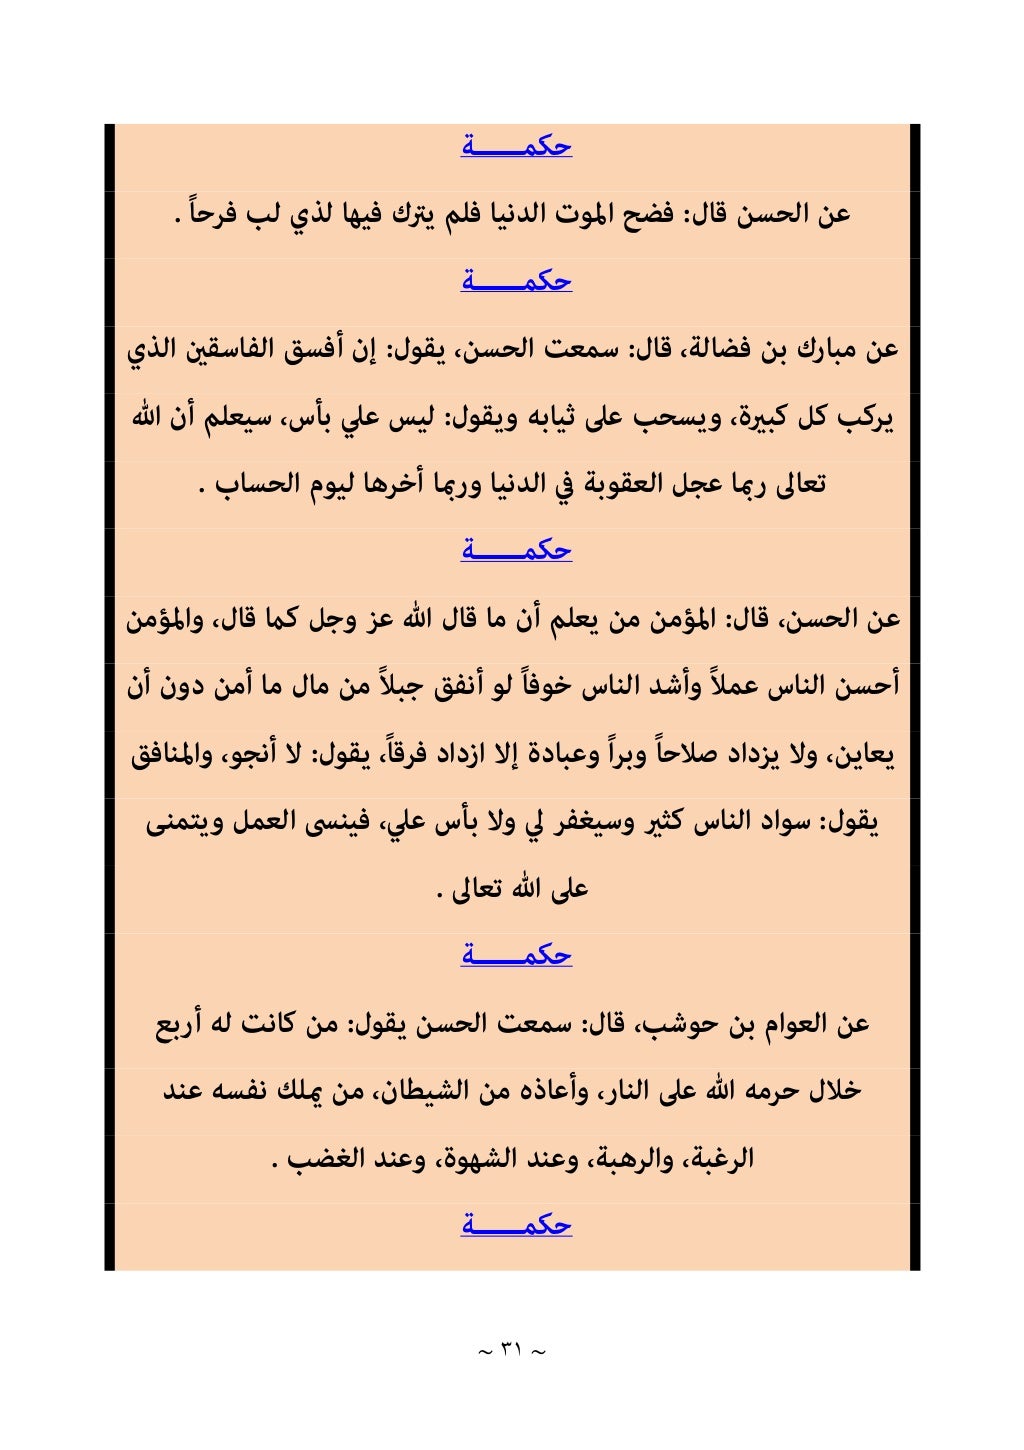 حكمــــــة
عن الحسن قال: فضح الموت الدنيا فلم يترك فيها لذي لب فرحاً .
حكمــــــة
عن مبارك بن فضالة، قال: سمعت الحسن، يقول: إن أفسق الفاسقين الذي
يركب كل كبيرة، ويسحب على ثيابه ويقول: ليس علي بأس، سيعلم أن الله
تعالى ربما عجل العقوبة في الدنيا وربما أخرها ليوم الحساب .
حكمــــــة
عن الحسن، قال: المؤمن من يعلم أن ما قال الله عز وجل كما قال، والمؤمن
أحسن الناس عملاً وأشد الناس خوفاً لو أنفق جبلاً من مال ما أمن دون أن
يعاين، ولا يزداد صلاحاً وبراً وعبادة إلا ازداد فرقاً، يقول: لا أنجو، والمنافق
يقول: سواد الناس كثير وسيغفر لي ولا بأس علي، فينسى العمل ويتمنى
على الله تعالى .
حكمــــــة
عن العوام بن حوشب، قال: سمعت الحسن يقول: من كانت له أربع
خلال حرمه الله على النار، وأعاذه من الشيطان، من يملك نفسه عند
الرغبة، والرهبة، وعند الشهوة، وعند الغضب .
حكمــــــة
~ ٣١ ~